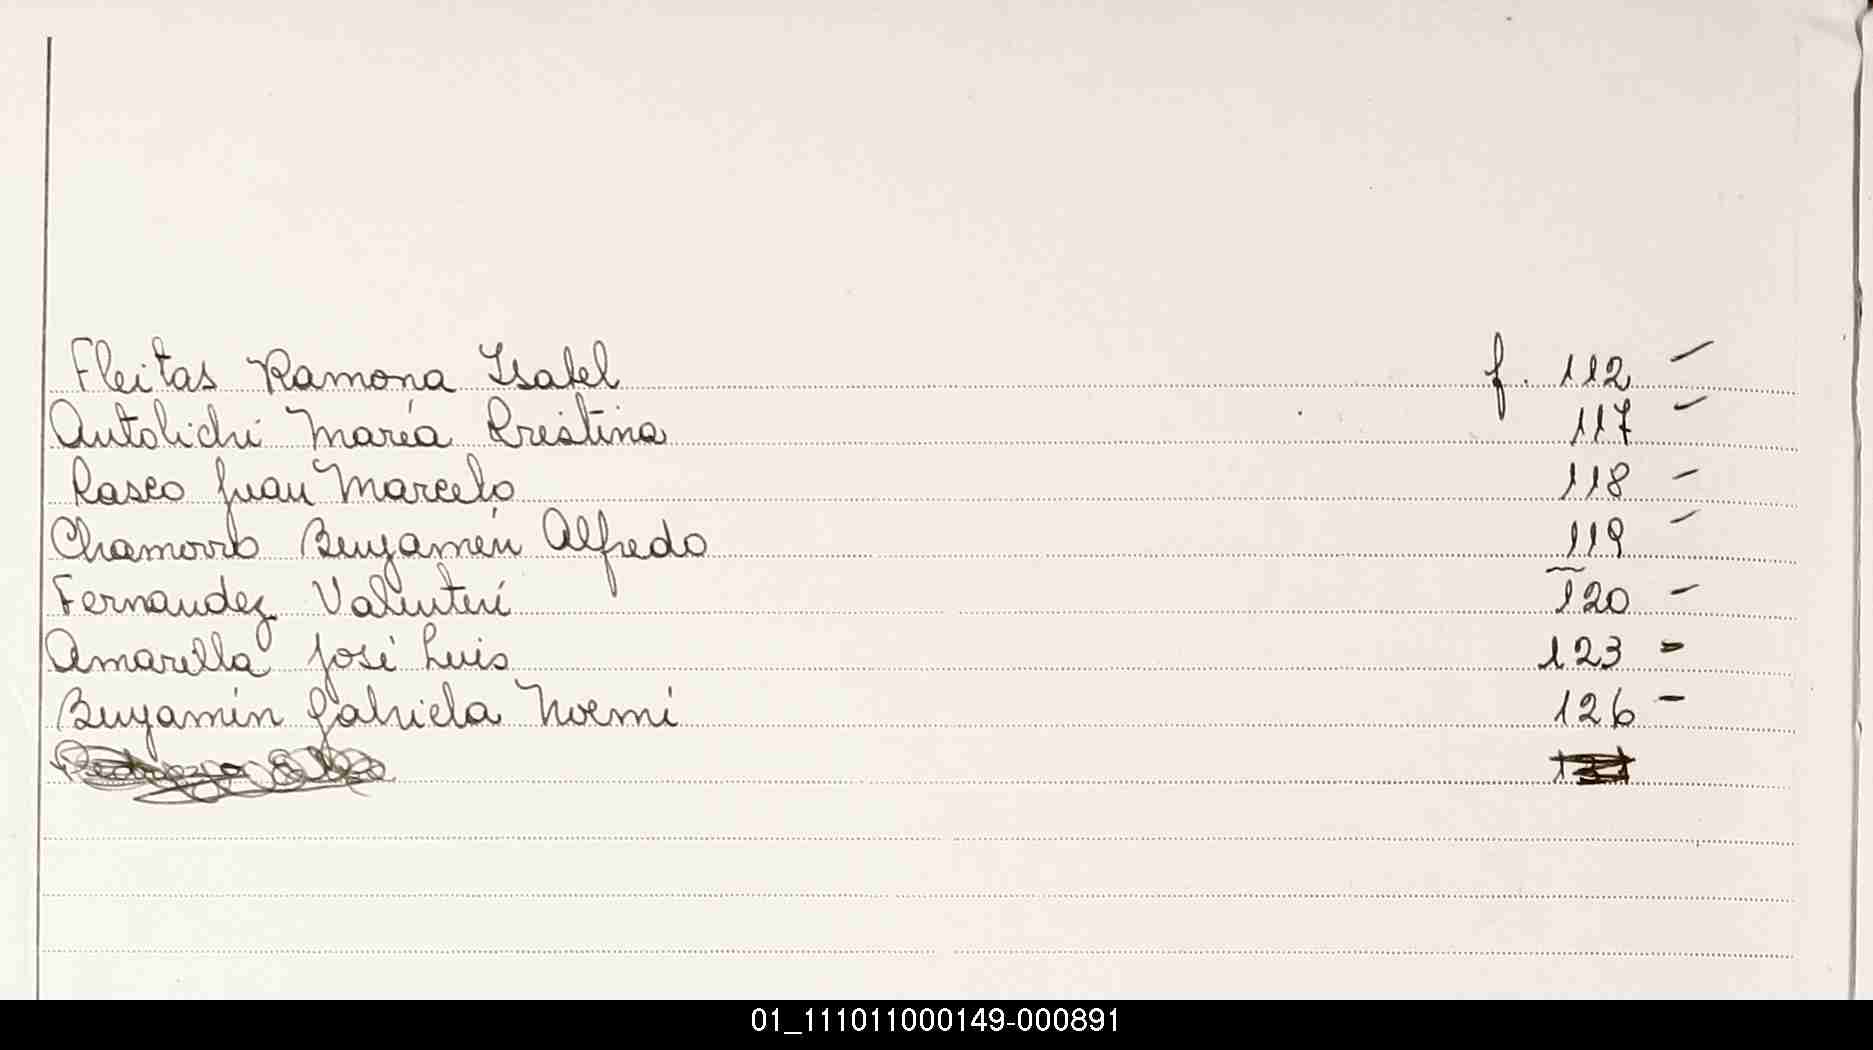 Fleitas Ramona Isabel f. 112 -
Autolichi María Cristina 117 -
Rasco Juan Marcelo 118 -
Chamorro Benjamín Alfredo 119 -
Fernandez Valentín 120 -
Amarilla José Luis 123 -
Benjamín Gabriela Noemi 126 -
01_111011000149-000891